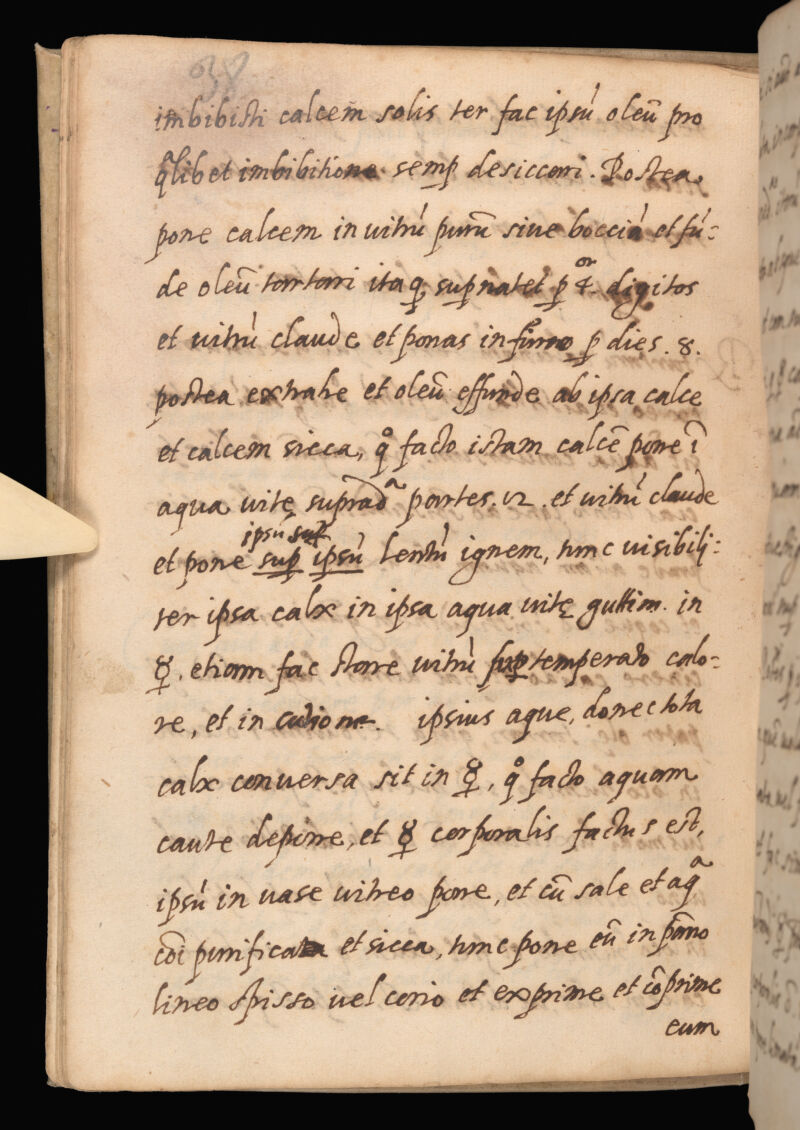 38
imbibisti calcem solis ter fac ipsu᷑ oleū pro
q̃libet imbibitione semp̱ desiccari. Postea
pone calcem in uitru᷑ purū siue bocciá et fú:
de oleū tartari itaq; sup̱natet p̱ 4.or digitos
et uitrú claude et ponas in furno p̱ dies .8.
postea extrahe et oleū effunde ab ipsa calce
et calcem sicca, qͦ facto istam calcē pone ī
aqua uitę supradᵃ partes. 12 .et uitrú claude
ipsú sup̱
et pone sup̱ ipsú lentú ignem, tunc uisibili:
ter ipsa calx in ipsa aqua uitę guttim. in
☿. etiam fac stare uitrú sup̱ temperato calo:
re, et in ipsius aque, donec tota
calx conuersa sit in ☿, qͦ facto aquam
caute depone, et ☿ corporalis factus est,
ipsú in uase uitreo pone, et cū sale et aqᵃ
cōi purificata et sicca, tunc pone eū in pāno
lineo spisso uel corio et exprime et cōprime
eum